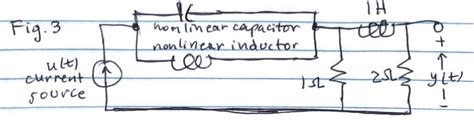 Fig. 3
1H
nonlinear capacitor
nonlinear inductor
u(t)
current
source
1Ω
2Ω
+
y(t)
-